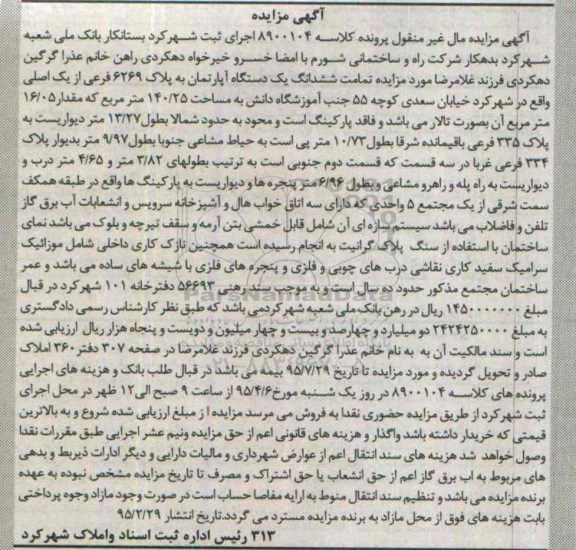 آگهی مزایده
آگهی مزایده مال غیر منقول پرونده کلاسه ۸۹۰۰۱۰۴ اجرای ثبت شهرکرد بستانکار بانک ملی شعبه
شهرکرد بدهکار شرکت راه و ساختمانی شورم با امضا خسرو خیرخواه دهکردی راهن خانم عذرا گرگین
دهکردی فرزند غلامرضا مورد مزایده تمامت ششدانگ یک دستگاه آپارتمان به پلاک ۶۲۶۹ فرعی از یک اصلی
واقع در شهرکرد خیابان سعدی کوچه ۵۵ جنب آموزشگاه دانش به مساحت ۱۴۰/۲۵ متر مربع که مقدار ۱۶/۰۵
متر مربع آن بصورت تالار می باشد و فاقد پارکینگ است و محود به حدود شمالا بطول ۱۳/۲۷ متر دیواریست به
پلاک ۳۳۵ فرعی باقیمانده شرقا بطول ۱۰/۷۳ متر پی است به حیاط مشاعی جنوبا بطول ۹/۹۷ متر بدیوار پلاک
۳۳۴ فرعی غربا در سه قسمت که قسمت دوم جنوبی است به ترتیب بطولهای ۳/۸۲ متر و ۴/۶۵ متر درب و
دیواریست به راه پله و راهرو مشاعی و بطول ۶/۹۶ متر پنجره ها و دیواریست به پارکینگ ها واقع در طبقه همکف
سمت شرقی از یک مجتمع ۵ واحدی که دارای سه اتاق خواب هال و آشپزخانه سرویس و انشعابات آب برق گاز
تلفن و فاضلاب می باشد سیستم سازه ای آن شامل قابل خمشی بتن آرمه و سقف تیرچه و بلوک می باشد نمای
ساختمان با استفاده از سنگ پلاک گرانیت به انجام رسیده است همچنین نازک کاری داخلی شامل موزائیک
سرامیک سفید کاری نقاشی درب های چوبی و فلزی و پنجره های فلزی با شیشه های ساده می باشد و عمر
ساختمان مجتمع مذکور حدود ده سال است و به موجب سند رهنی ۵۶۶۹۳ دفترخانه ۱۰۱ شهرکرد در قبال
مبلغ ۱۴۵۰۰۰۰۰۰۰ ریال در رهن بانک ملی شعبه شهرکرد می باشد که طبق نظر کارشناس رسمی دادگستری
به مبلغ ۲۴۲۴۲۵۰۰۰۰ دو میلیارد و چهارصد و بیست و چهار میلیون و دویست و پنجاه هزار ریال ارزیابی شده
است و سند مالکیت آن به به نام خانم عذرا گرگین دهکردی فرزند غلامرضا در صفحه ۳۰۷ دفتر ۳۶۰ املاک
صادر و تحویل گردیده و مورد مزایده تا تاریخ ۹۵/۷/۲۹ بیمه می باشد در قبال طلب بانک و هزینه های اجرایی
پرونده های کلاسه ۸۹۰۰۱۰۴ در روز یک شنبه مورخ ۹۵/۴/۶ از ساعت ۹ صبح الی ۱۲ ظهر در محل اجرای
ثبت شهرکرد از طریق مزایده حضوری نقدا به فروش می مرسد مزایده از مبلغ ارزیابی شده شروع و به بالاترین
قیمتی که خریدار داشته باشد واگذار و هزینه های قانونی اعم از حق مزایده ونیم عشر اجرایی طبق مقررات نقدا
وصول خواهد شد هزینه های سند انتقال اعم از عوارض شهرداری و مالیات دارایی و دیگر ادارات ذیربط و بدهی
های مربوط به اب برق گاز اعم از حق انشعاب یا حق اشتراک و مصرف تا تاریخ مزایده مشخص نبوده به عهده
برنده مزایده می باشد و تنظیم سند انتقال منوط به ارایه مفاصا حساب است در صورت وجود مازاد وجوه پرداختی
بابت هزینه های فوق از محل مازاد به برنده مزایده مسترد می گردد.تاریخ انتشار ۹۵/۲/۲۹
۳۱۳ رئیس اداره ثبت اسناد واملاک شهرکرد